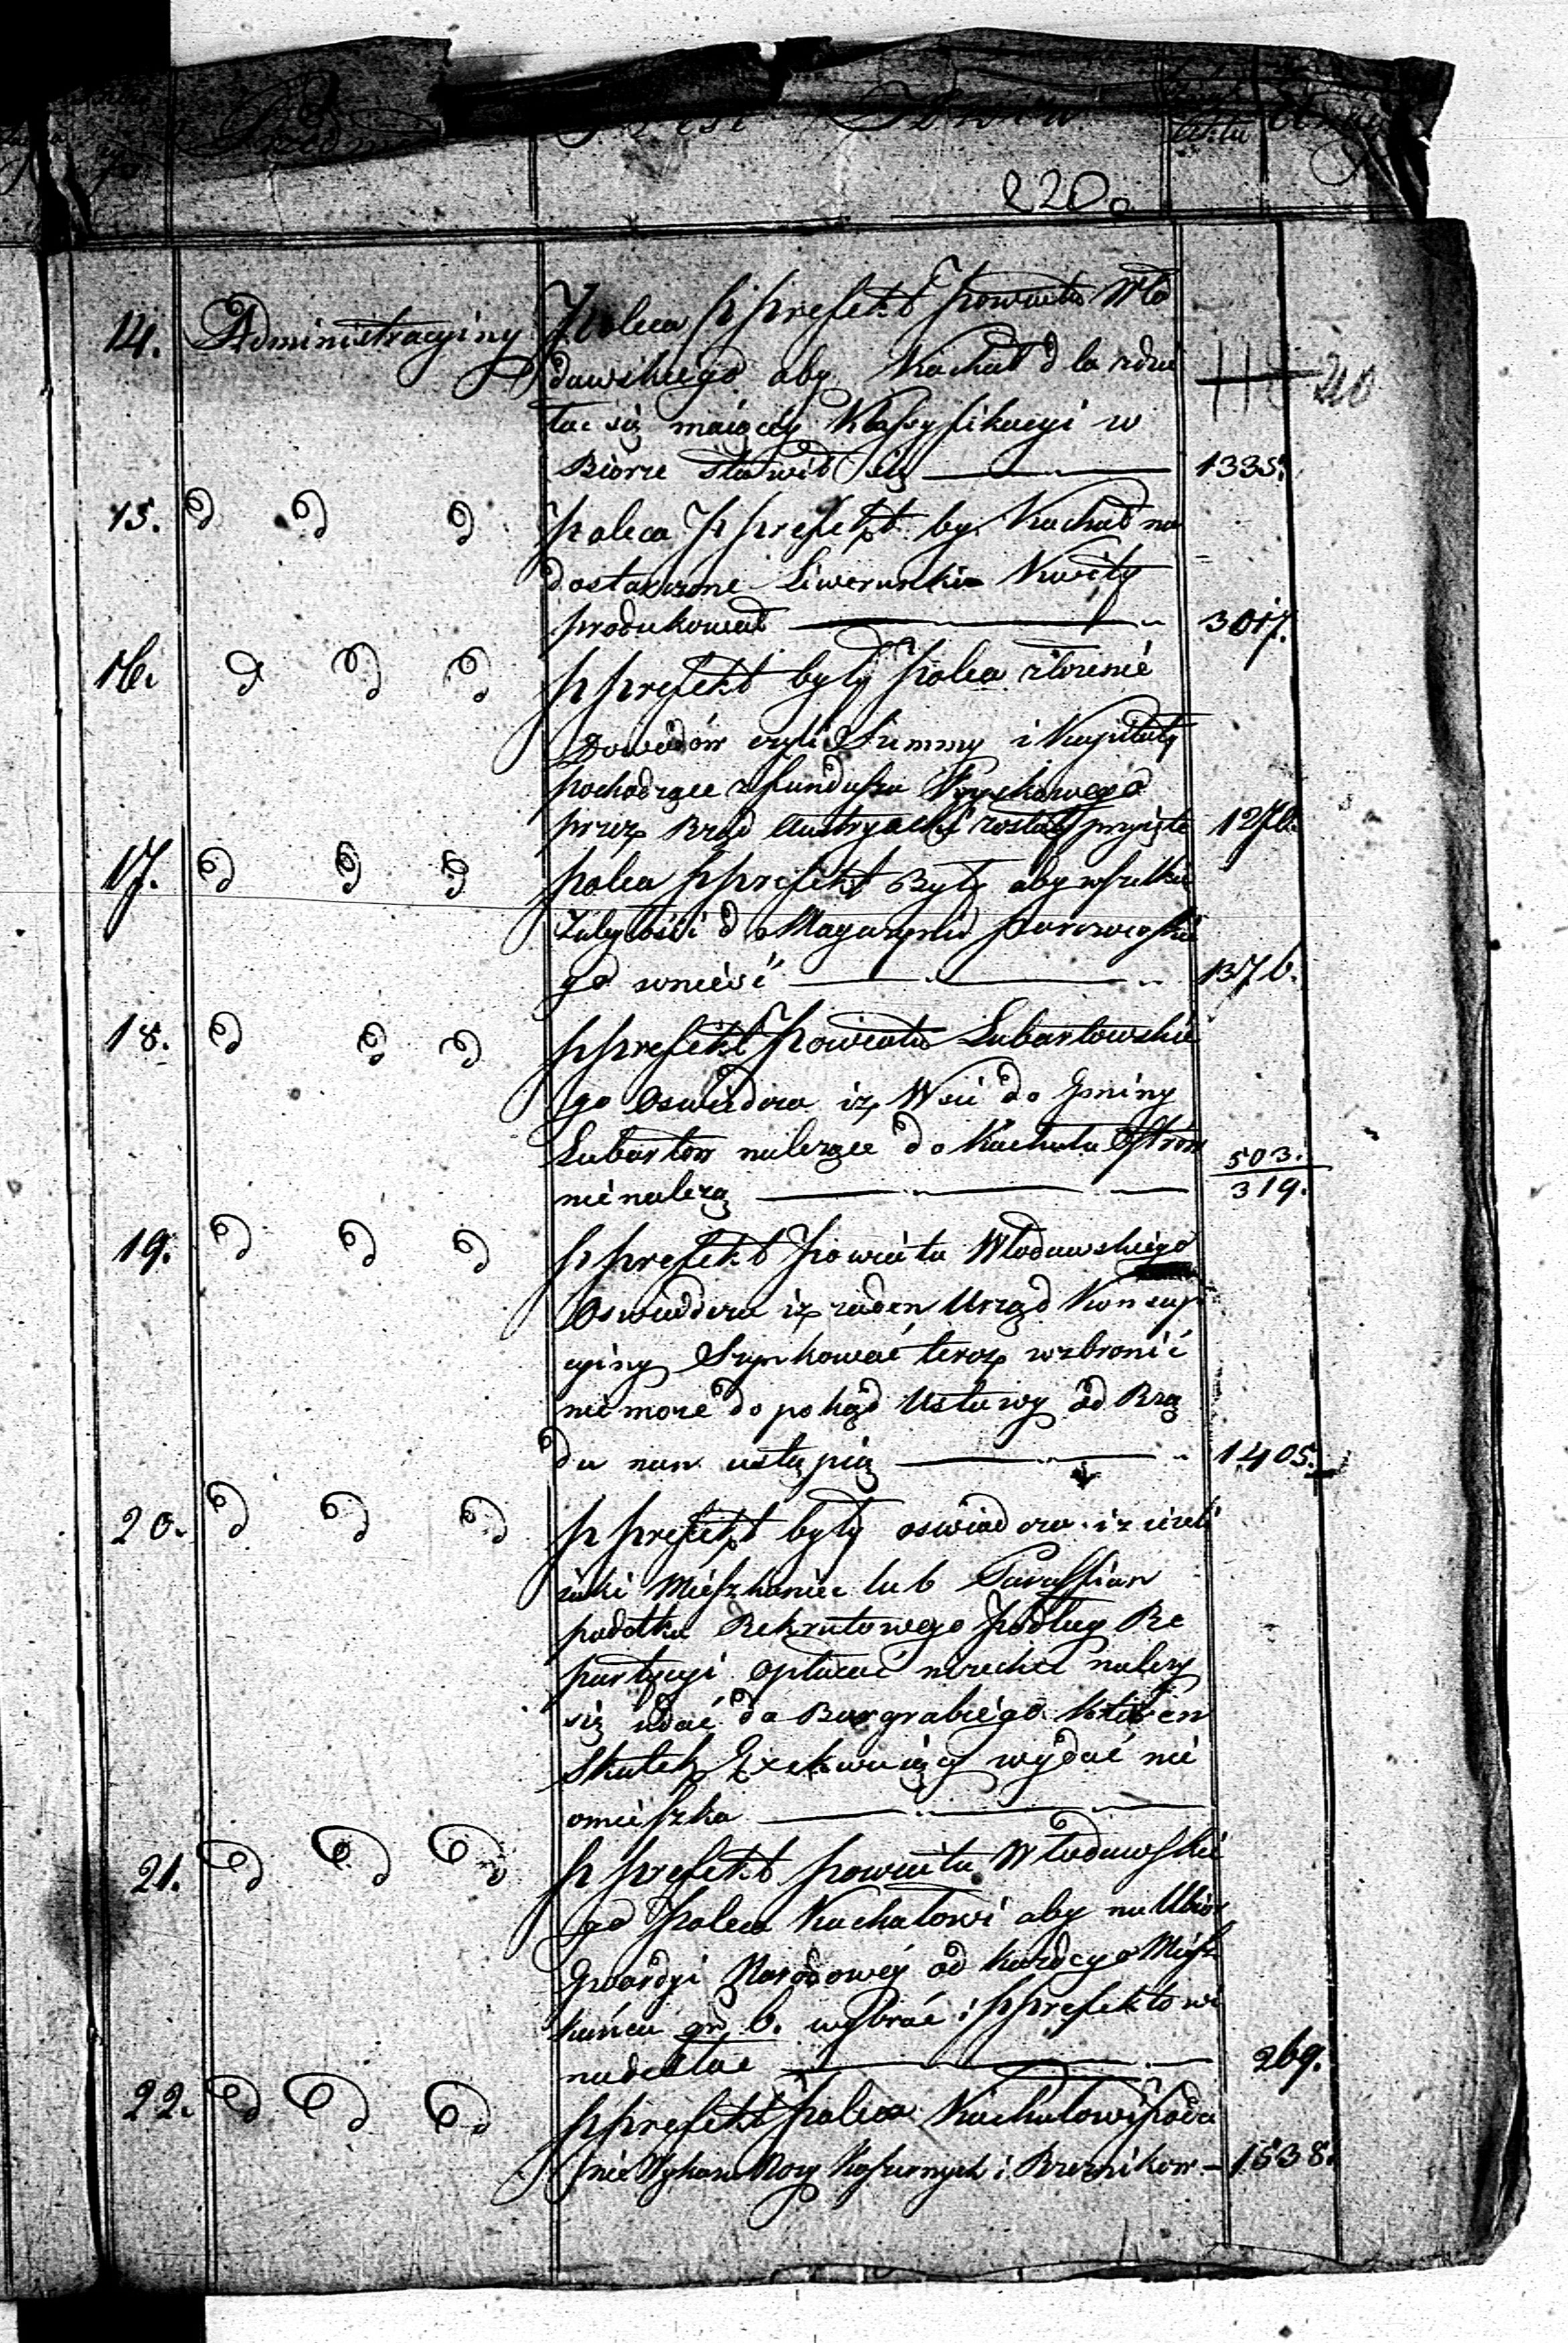 220.
14. Administracyiny Poleca P prefekt Powiatu Wło
dawskiego aby Kachał dla zdzia
łac się maiącey Klassyfikacyi w
Biorze stawił się 1335.
15. Poleca P prefekt by Kachał na
dostarczone Liwerunkie Kwity
produkował 3017.
16. P prefekt były Poleca złożenie
Dowodów czyli Summy i Kapitały
pochodzące z funduszu
przez Rząd Austryacki zostały przyięte
17. Poleca P prefekt Były aby wszelkie
Zaległości do Magazynu Parczewskie
go wnieść 1376.
18. P prefekt Powiatu Lubartowskie
go Oswiadcza iz Wsie do Gminy
Lubartow nalezące do Kachału Ostrow
nie nalezą 503.
319.
19. P prefekt Powiatu Włodawskiego
Oswiadcza iz zaden Urząd Konsup
cyiny Szynkować teraz wzbronić
nie moze dopokąd Ustawy od Rzą
du nan ustąpią 1405.
20. P prefekt były oswiadcza iz iezeli
iaki Mieszkaniec lub Paraffian
podatku Rekrutowego Podług Re
partycyi Opłacać niezechce nalezy
się udać do Burgrabiego który en
Skutek Exekwuiący wydać nie
omieszka
21. P prefekt Powiatu Włodawskie
go Poleca Kachałowi aby na Ubior
Gwardyi Narodowey od kazdego Miesz
kańca gr 6. wybrać i P prefektowi
nadesłac 269.
22. P prefekt Poleca Kachałowi Poda
nie Wykazu Koszernych i Rzeznikow 1538.